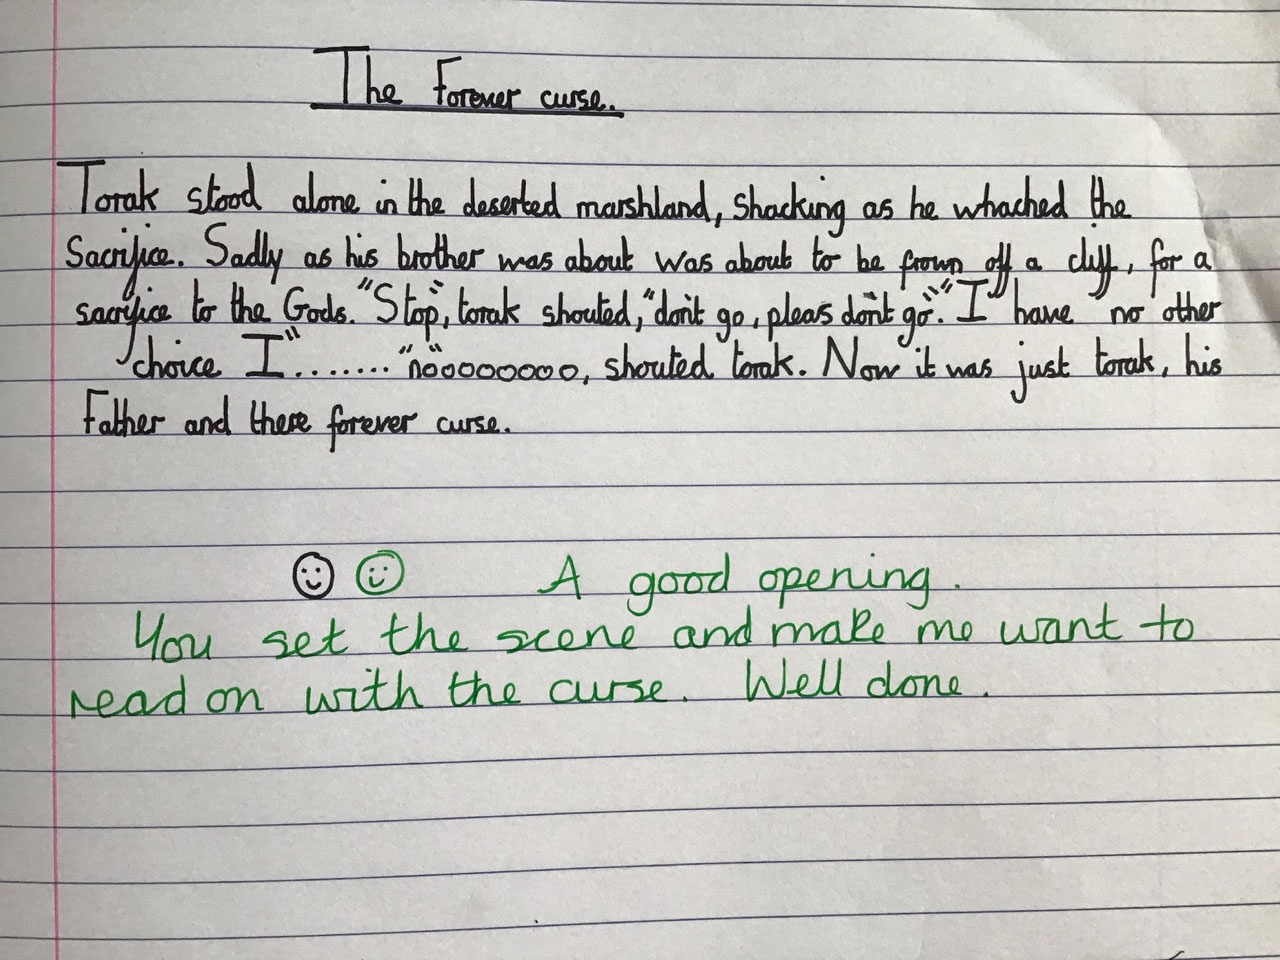 The Forever curse.
Torak stood alone in the deserted marshland, shacking as he whached the
Sacrifice. Sadly as his brother was about was about to be frown off a cliff, for a
sacrifice to the Gods. "Stop", torak shouted, "don't go, pleas don't go". "I have no other
choice I"........ "n"oooooooo, shouted torak. Now it was just torak, his
Father and there forever curse.
A good opening.
You set the scene and make me want to
read on with the curse. Well done.